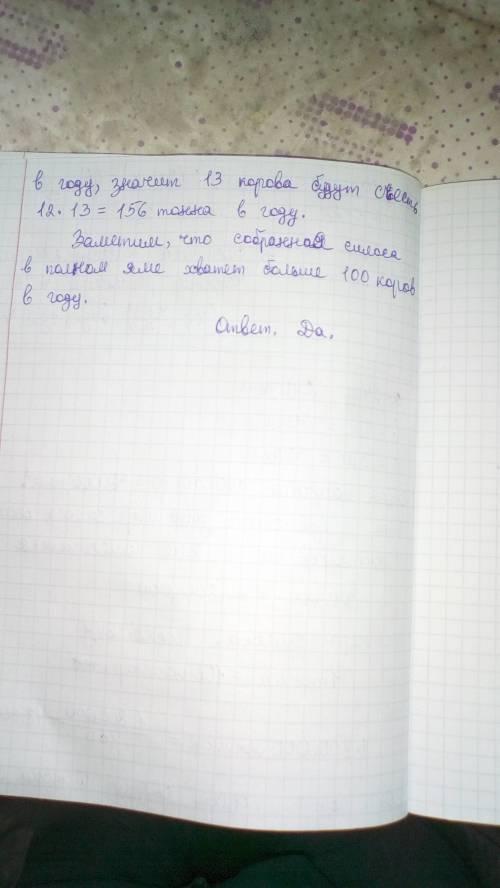 в году, значит 13 корова будут съесть
12 · 13 = 156 тонна в году.
Заметим, что собранная силоса
в полном яме хватет больше 100 коров
в году.
Ответ. Да.